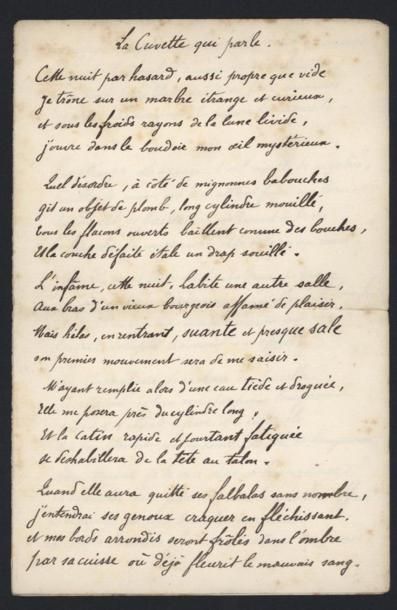 La Cuvette qui parle.
Cette nuit par hasard, aussi propre que vide
je trône sur un marbre étrange et curieux,
et sous les froids rayons de la lune livide,
j'ouvre dans le boudoir mon œil mystérieux.
Quel désordre, à côté de mignonnes babouches
git un objet de plomb, long cylindre mouillé,
tous les flacons ouverts baillent comme des bouches,
Et la couche défaite étale un drap souillé.
L'infame, cette nuit, habite une autre salle,
Aux bras d'un vieux bourgeois affamé de plaisir.
Mais hélas, en rentrant, suante et presque sale
son premier mouvement sera de me saisir.
M'ayant remplie alors d'une eau tiède et droguée,
Elle me posera près du cylindre long,
Et la catin rapide et pourtant fatiguée
se déshabillera de la tête au talon.
Quand elle aura quitté ses falbalas sans nombre,
j'entendrai ses genoux craquer en fléchissant,
et mes bords arrondis seront frôlés dans l'ombre
par sa cuisse où déjà fleurit le mauvais sang.